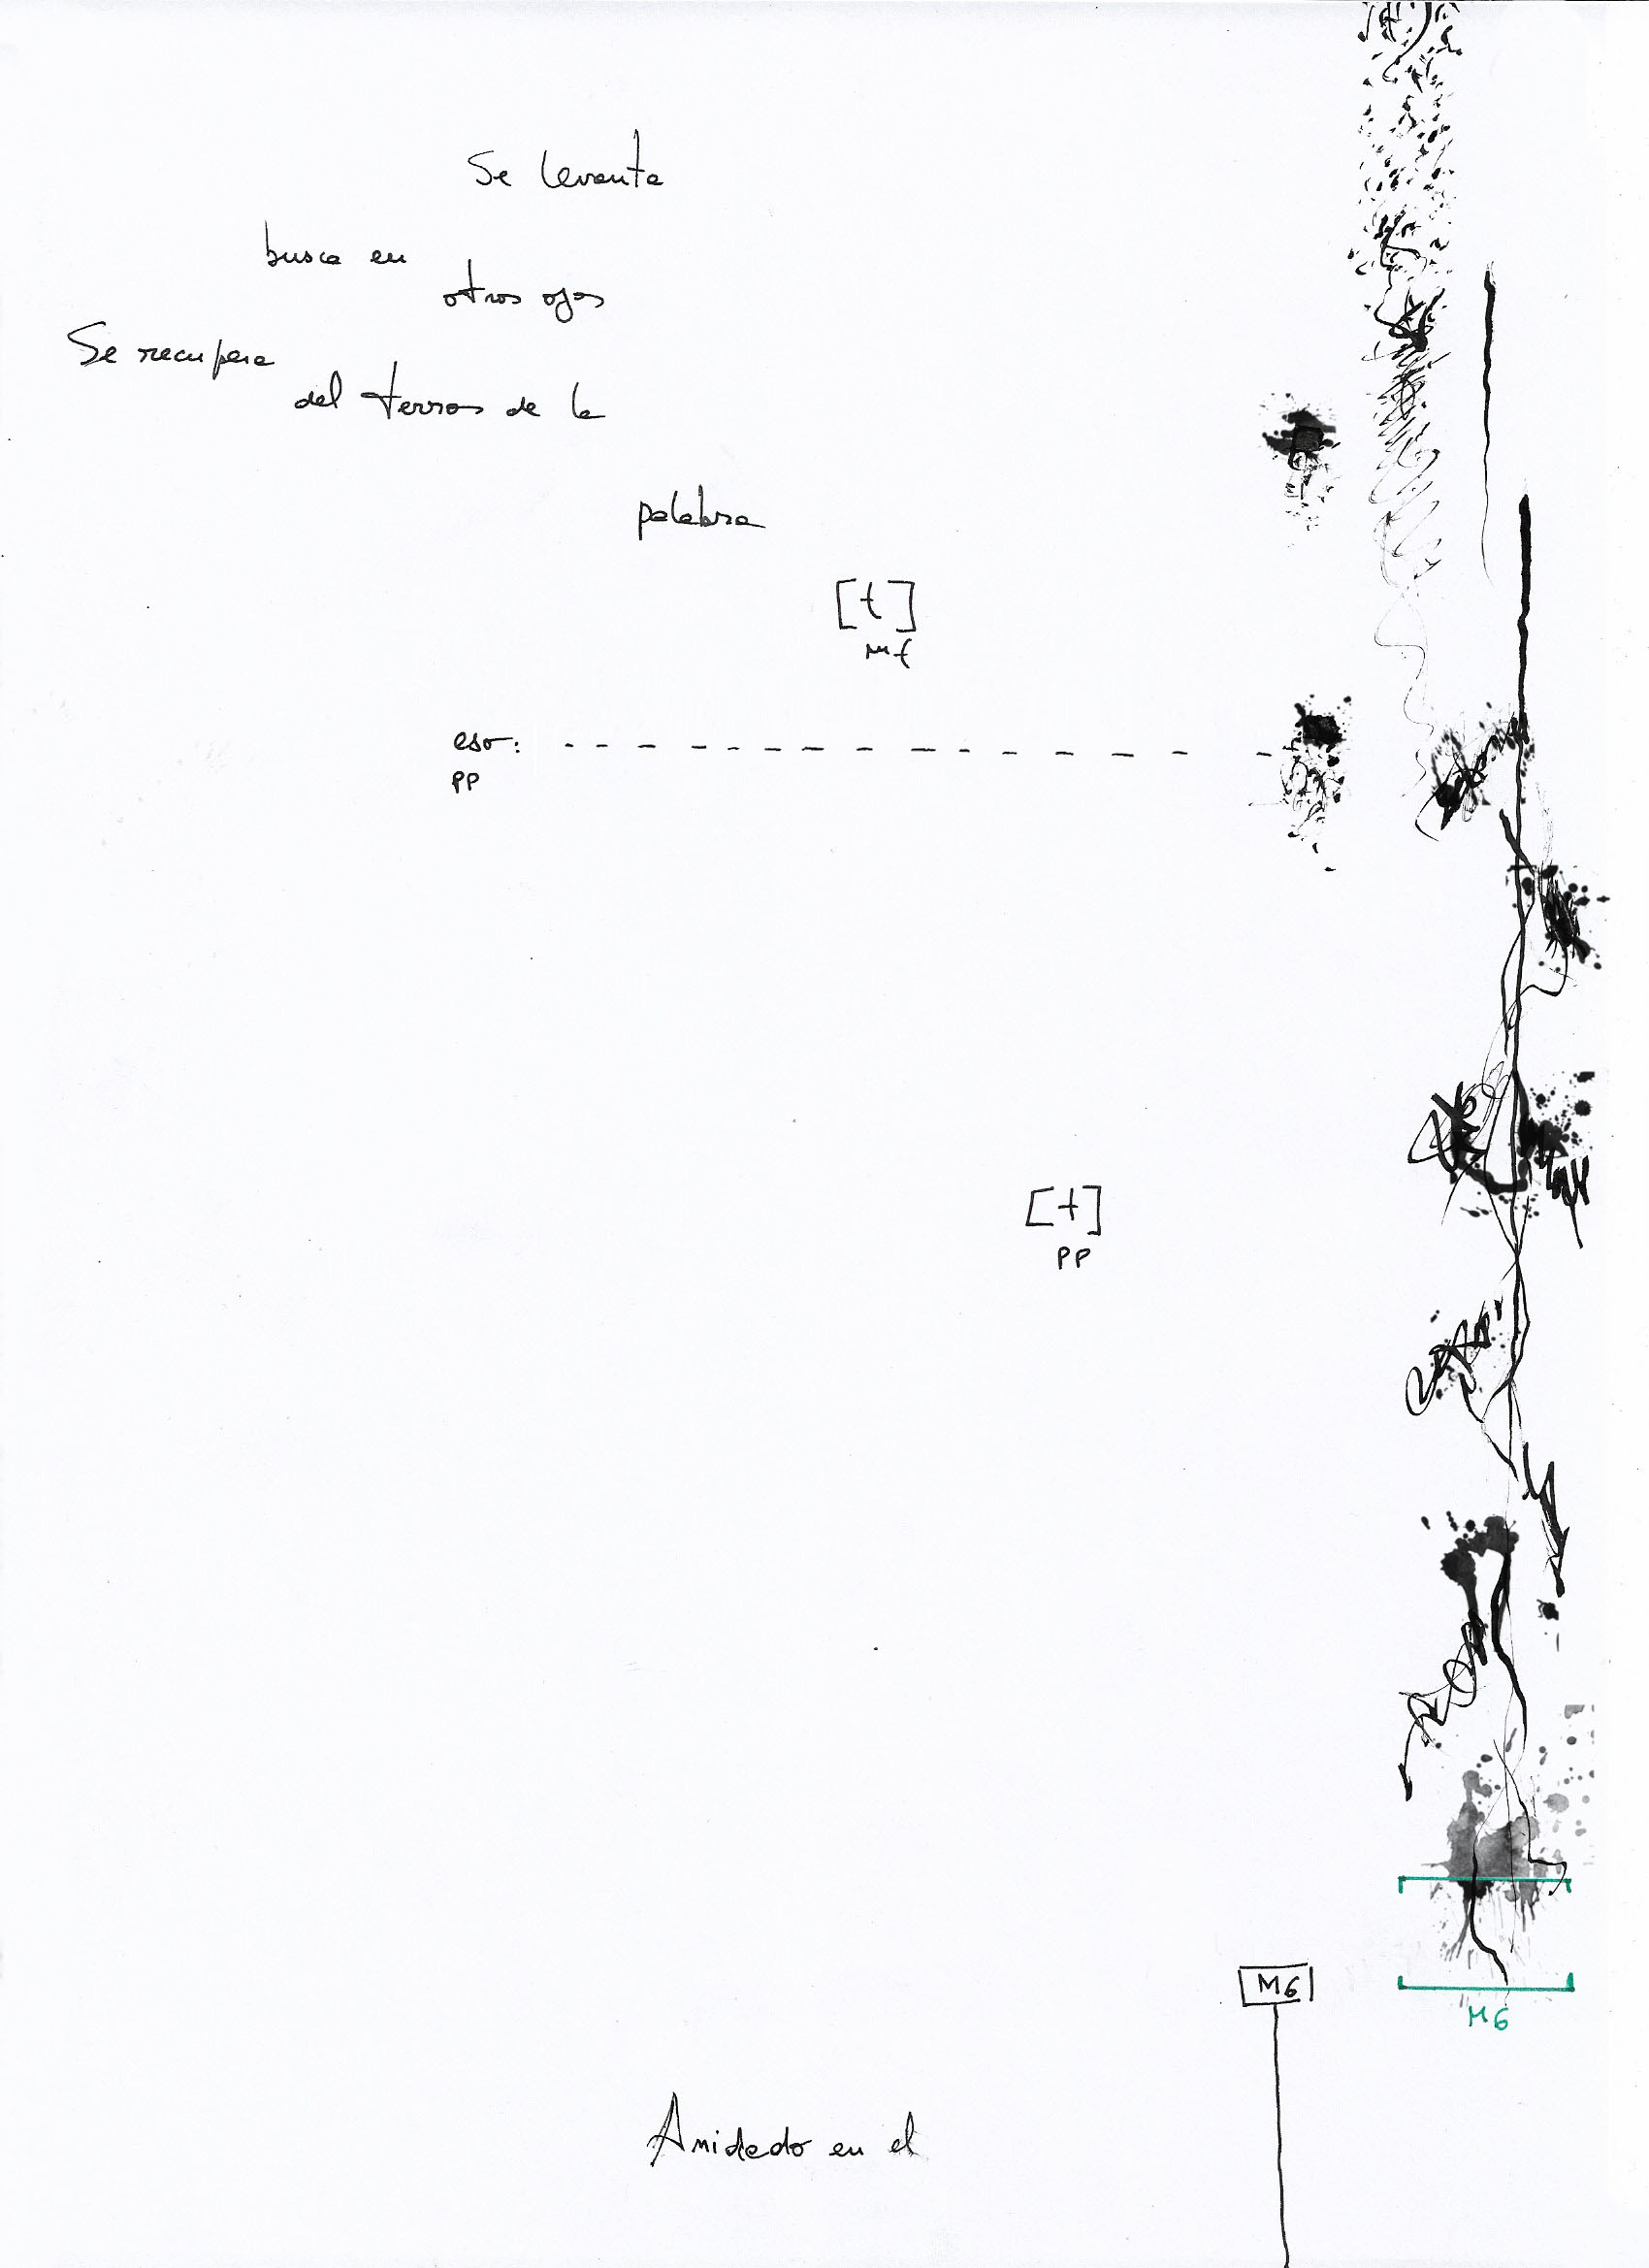 Se levanta
busca en
otros ojos
Se recupera
del terror de la
palabra
[t]
mf
eso: - - - - - - - - - - - - - - - -
pp
[t]
pp
M6
M6
Anidado en el